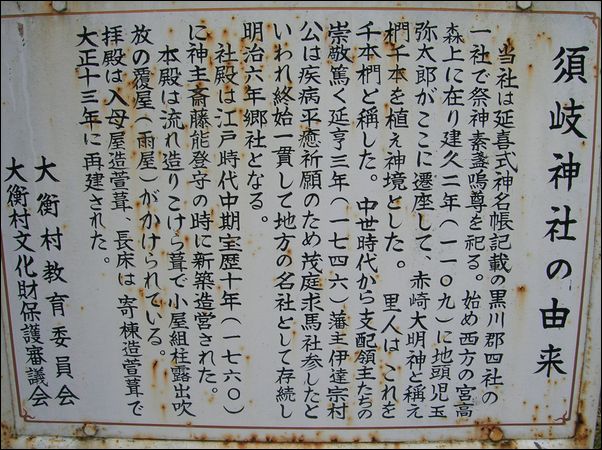 須岐神社の由来
当社は延喜式神名帳記載の黒川郡四社の
一社で祭神素盞嗚尊を祀る。始め西方の宮高
森上に在り建久二年(一一〇九)に地頭児玉
弥太郎がここに遷座して、赤崎大明神と稱え
椚千本を植え神境とした。 里人はこれを
千本椚と稱した。中世時代から支配領主たちの
崇敬篤く延亨三年(一七四六)藩主伊達宗村
公は疾病平癒祈願のため茂庭求馬社参したと
いわれ終始一貫して地方の名社として存続し
明治六年郷社となる。
社殿は江戸時代中期宝歴十年(一七六〇)
に神主斎藤能登守の時に新築造営された。
本殿は流れ造りこけら葺で小屋組柱露出吹
放の覆屋(雨屋)がかけられている。
拝殿は入母屋造萱葺、長床は寄棟造萱葺で
大正十三年に再建された。
大衡村教育委員会
大衡村文化財保護審議会